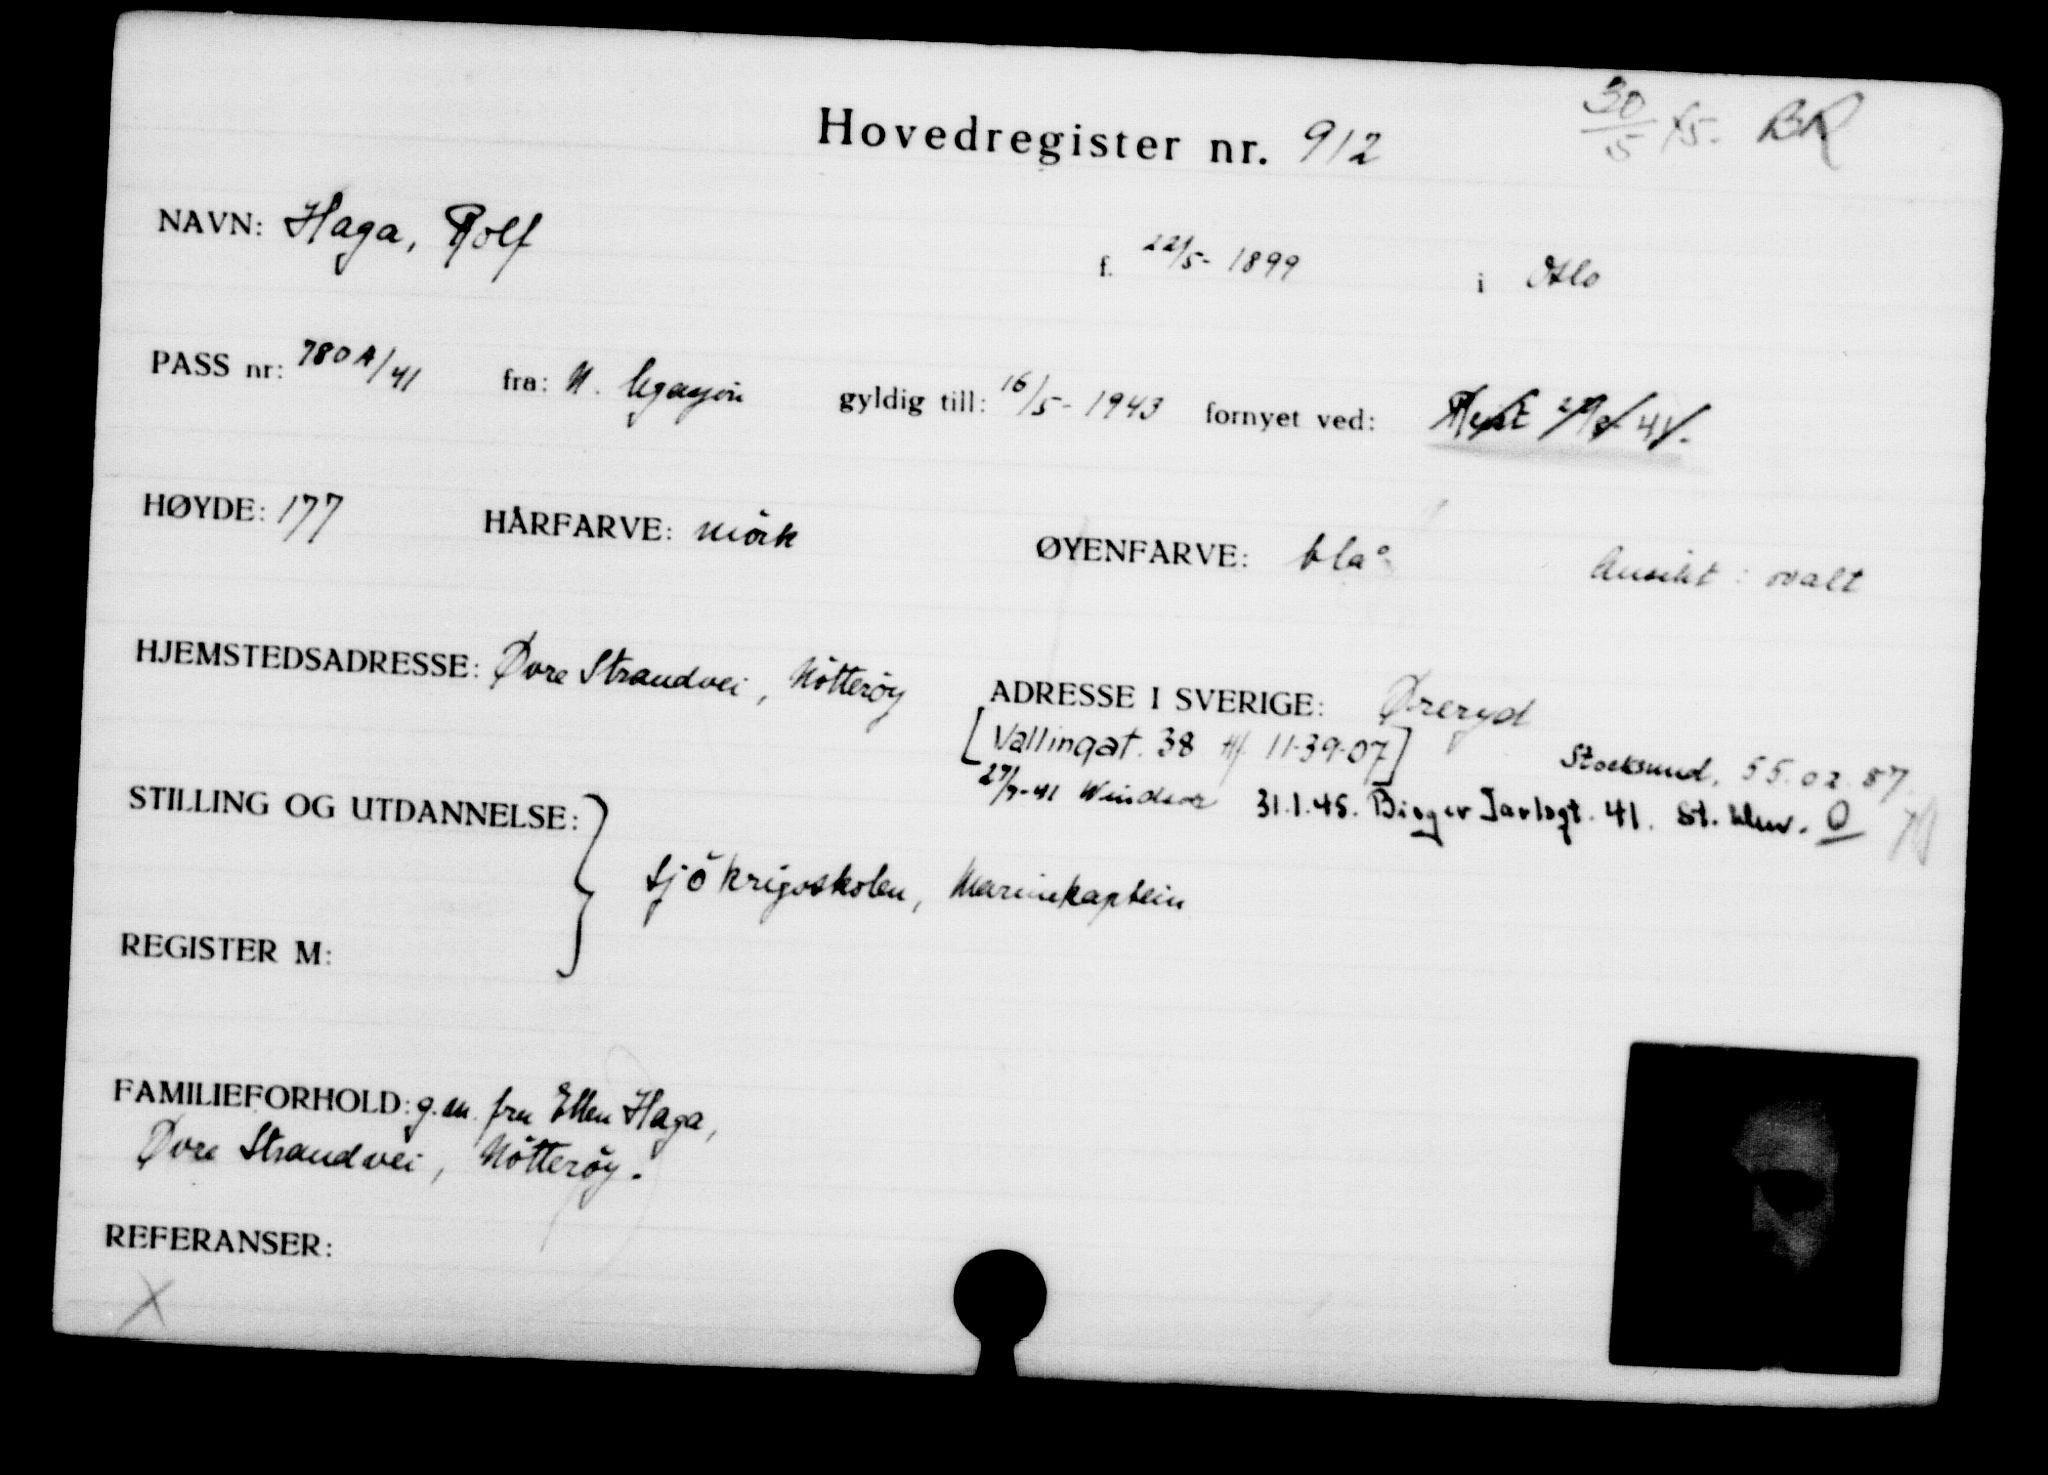 30/5 45. BR
Hovedregister nr. 912
NAVN: Haga, Rolf f. 22/5- 1899 i Oslo
PASS nr: 780A/41 fra: N. legasjon gyldig till: 16/5- 1943 fornyet ved:
HØYDE: 177 HÅRFARVE: mörk ØYENFARVE: blå Ansikt: ovalt
HJEMSTEDSADRESSE: Øvre Strandvei, Nötteröy ADRESSE I SVERIGE: Øreryd
[Vallingat. 38 tlf 11-39-07] Stocksund, 55.02.87.
27/9-41 Windsor 31.1.45. Birger Jarlsgt. 41. St. hlm. O
STILLING OG UTDANNELSE:
Sjökrigsskolen, Marinekaptein
REGISTER M:
FAMILIEFORHOLD: g.m. fru Ellen Haga,
Øvre Strandvei, Nötteröy.
REFERANSER:
X